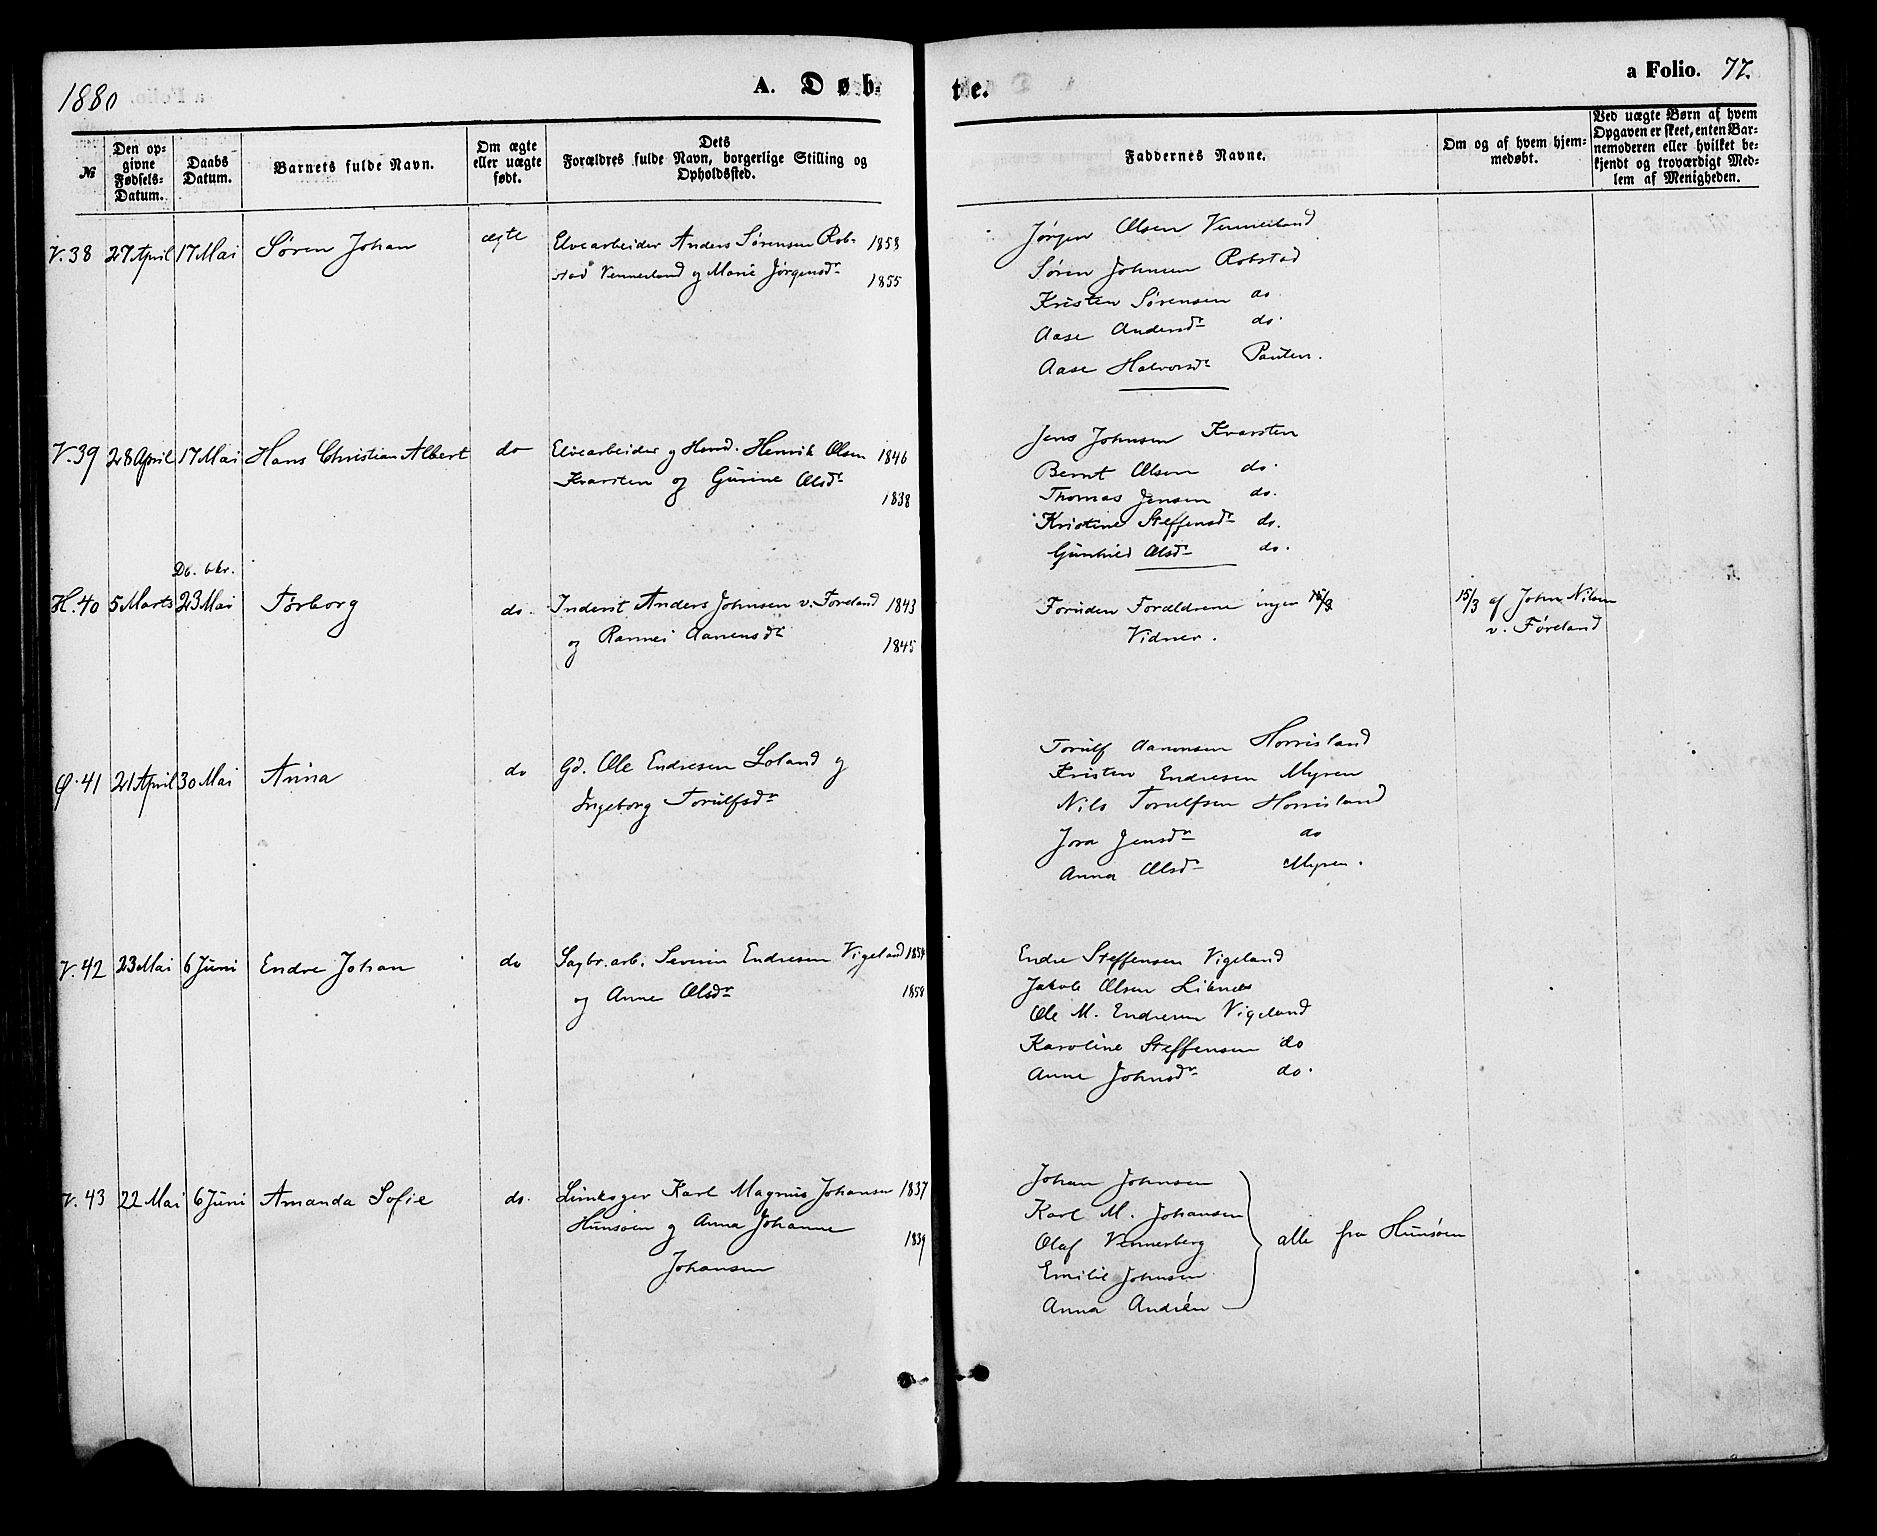 1880
A. Døb-
te.
a Folio. 77.
№
Den op-
givne
Fødsels-
Datum.
Daabs
Datum.
Barnets fulde Navn.
Om ægte
eller uægte
født.
Dets
Forældres fulde Navn, borgerlige Stilling og
Opholdssted.
Faddernes Navne.
Om og af hvem hjem-
medøbt.
Ved uægte Børn af hvem
Opgaven er skeet, enten Bar-
nemoderen eller hvilket be-
kjendt og troværdigt Med-
lem af Menigheden.
V. 38 27 April 17 Mai Søren Johan ægte Elvearbeider Anders Sørensen Rob- 1858
stad Vennerland og Marie Jørgensdr 1855
Jørgen Olsen Vennerland
Søren Johnsen Robstad
Kristen Sørensen do.
Aase Andersdr do.
Aase Halvorsdr Pauten.
V. 39 28 April 17 Mai Hans Christian Albert do Elvearbeider og Hmd. Henrik Olsen 1846
Kvarsten og Gurine Olsdr
1838
Jens Johnsen Kvarsten
Bernt Olsen do.
Thomas Jensen do.
Kristine Steffensdr do.
Gunhild Olsdr do.
Db. bkr.
H. 40 5 Marts 23 Mai Torborg do. Inderst Anders Johnsen v. Foreland 1843
og Rannei Aanensdr 1845
Foruden Forældrene ingen
Vidner.
15/3 af John Nilsen
v. Føreland
Ø. 41 21 April 30 Mai Anna do Gd. Ole Endresen Loland og
Ingeborg Torulfsdr
Torulf Aanonsen Homisland
Kristen Endresen Myren
Nils Torulfsen Homisland
Jora Jensdr do
Anna Olsdr Myren.
V. 42 23 Mai 6 Juni Endre Johan do Sagbr. arb. Severin Endresen Vigeland 1854
og Anne Olsdr 1858
Endre Steffensen Vigeland
Jakob Olsen Liknes
Ole M. Endresen Vigeland
Karoline Steffensen do
Anne Johnsdr do.
V. 43 22 Mai 6 Juni Amanda Sofie do. Limkoger Karl Magnus Johansen 1837
Hunsøen og Anna Johanne
1839
Johansen
Johan Johnsen
Karl M. Johansen
Olaf Vennerberg
alle fra Hunsøen
Emilie Johnsen
Anna Andrén